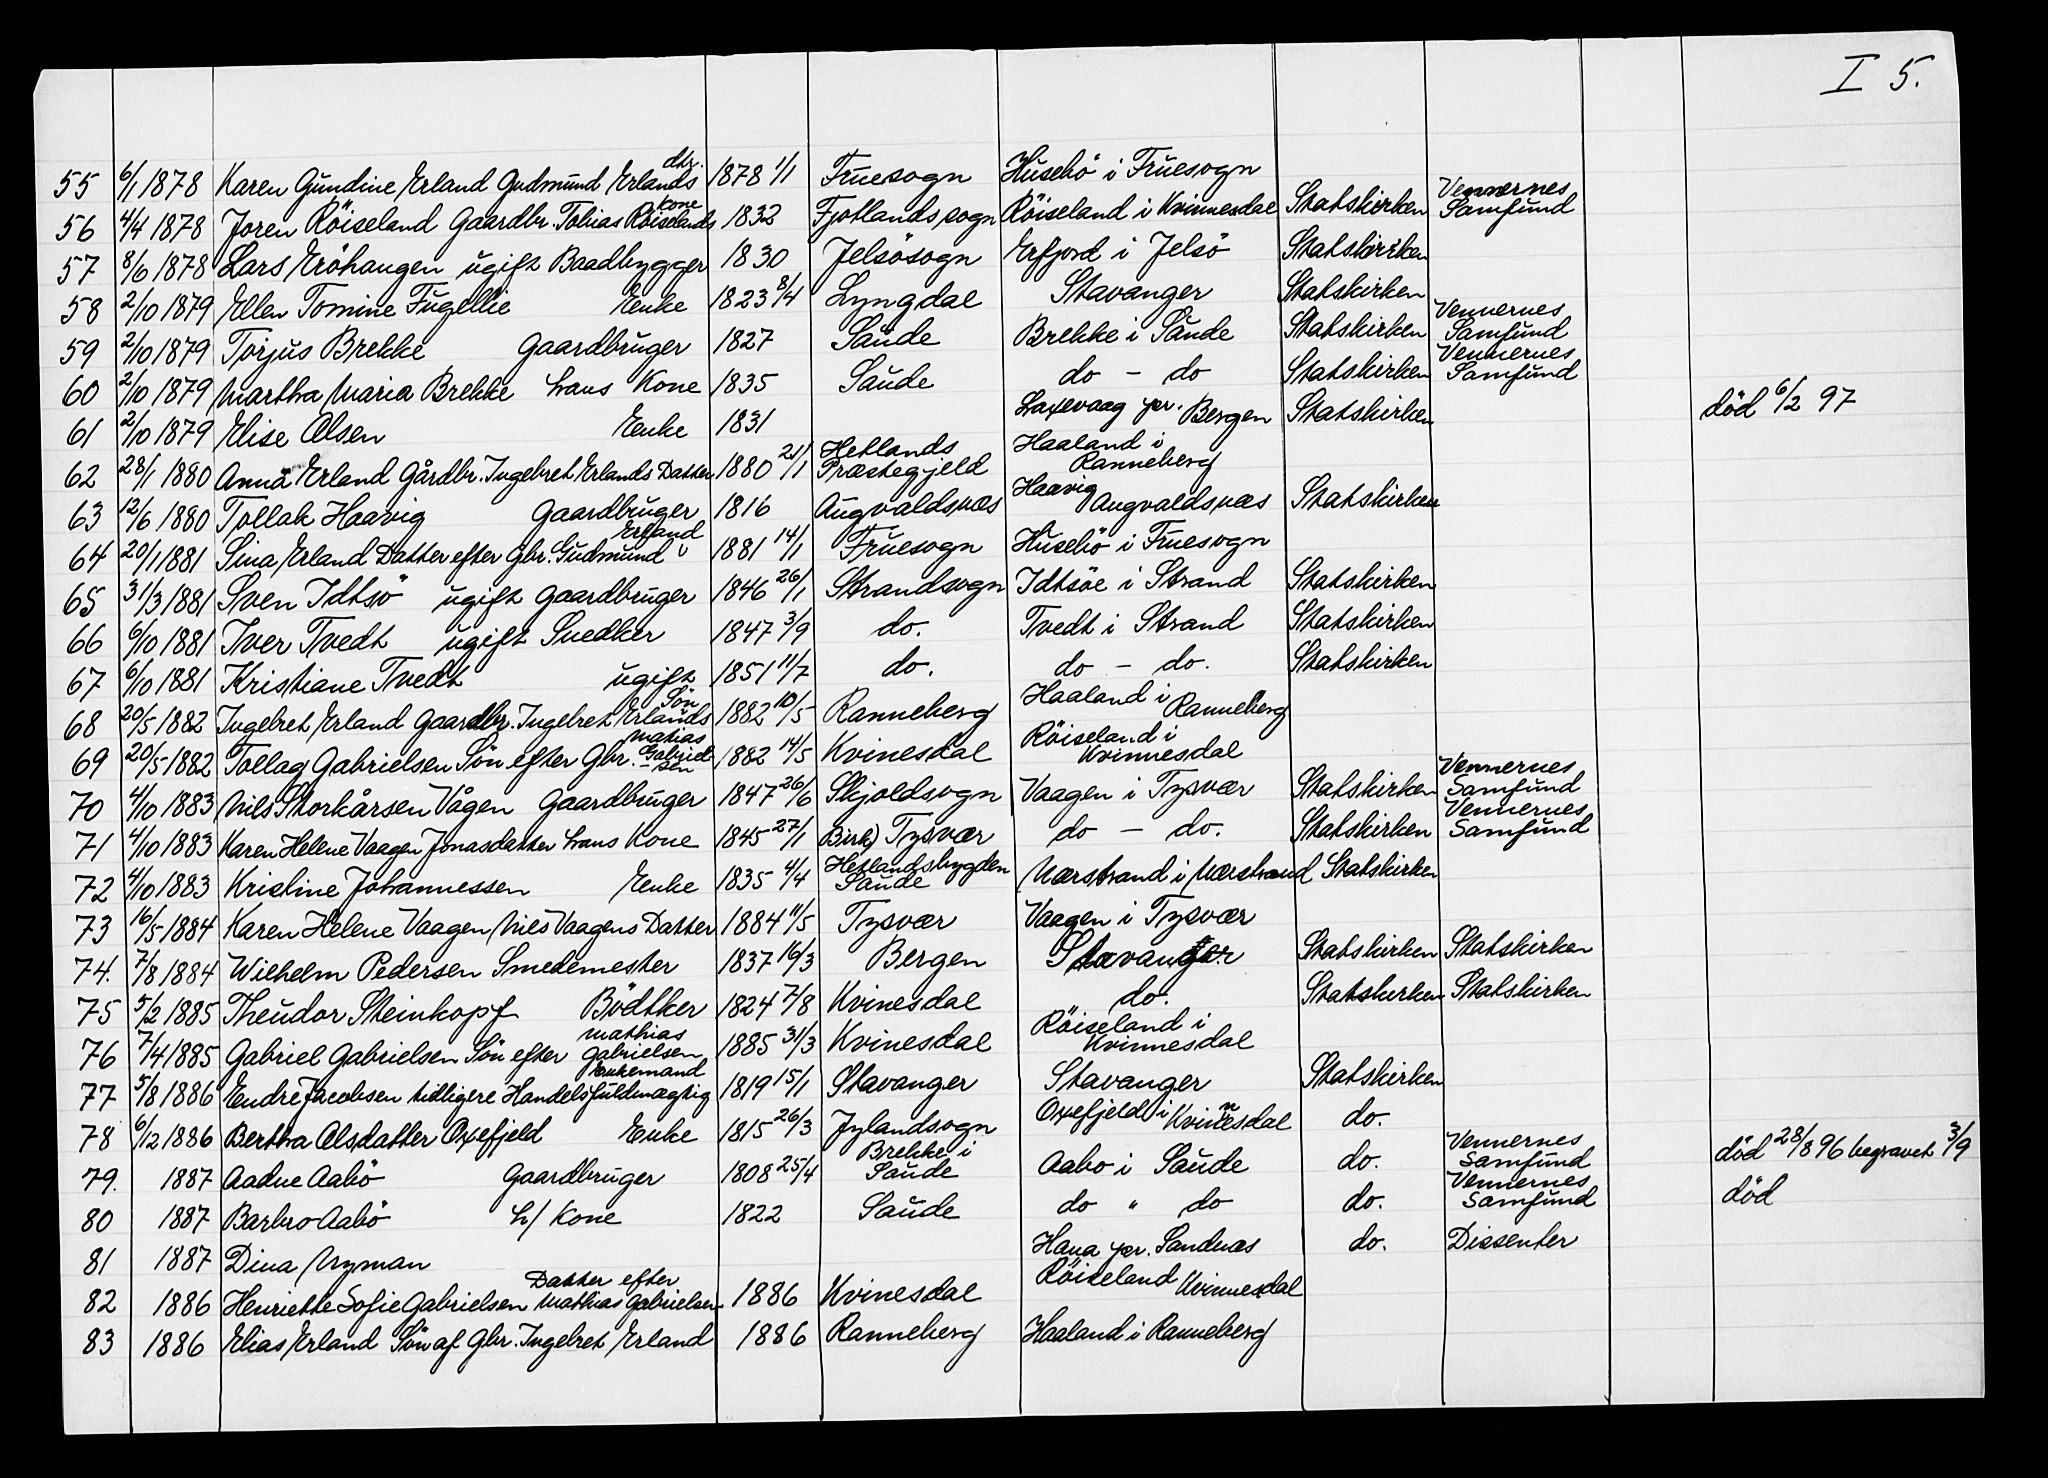 I 5.
55 6/1 1878 Karen Gundine Erland Gudmund Erlands dtr. 1878 1/1 Fruesogn Husebö i Fruesogn
56 4/4 1878 Joren Röiseland Gaardbr. Tobias Röiselands kone 1832 Fjotlands sogn Röiseland i Kvinnesdal Statskirken Vennernes Samfund
57 8/6 1878 Lars Eröhaugen ugift Baadbygger 1830 Jelsösogn Erfjord i Jelsö Statskirken
58 2/10 1879 Ellen Tomine Fugellie Enke 1823 8/4 Lyngdal Stavanger Statskirken
59 2/10 1879 Torjus Brekke Gaardbruger 1827 Saude Brekke i Saude Statskirken Vennernes Samfund
60 2/10 1879 Martha Maria Brekke hans Kone 1835 Saude do - do Statskirken Vennernes Samfund
61 2/10 1879 Elise Olsen Enke 1831 Laxevaag pr. Bergen Statskirken død 6/2 97
62 28/1 1880 Anna Erland Gårdbr. Ingebret Erlands Datter 1880 21/1 Hetlands Præstegjeld Haaland i Ranneberg
63 12/6 1880 Tollak Haavig Gaardbruger 1816 Augvaldsnæs Haavig Augvaldsnæs Statskirken
64 20/1 1881 Sina Erland Datter efter Gbr. Gudmund Erland 1881 14/1 Fruesogn Husebö i Fruesogn
65 31/3 1881 Sven Idtsö ugift Gaardbruger 1846 26/1 Strandsogn Idtsöe i Strand Statskirken
66 6/10 1881 Iver Tvedt ugift Snedker 1847 3/9 do. Tvedt i Strand Statskirken
67 6/10 1881 Kristiane Tvedt ugift 1851 11/7 do. do - do. Statskirken
68 20/5 1882 Ingebret Erland Gaardbr. Ingebret Erlands Sön 1882 10/5 Ranneberg Haaland i Ranneberg
69 20/5 1882 Tollag Gabrielsen Sön efter Gbr. Matias Gabriel-sen 1882 14/5 Kvinesdal Röiseland i Kvinnesdal
70 4/10 1883 Nils Storkårsen Vågen Gaardbruger 1847 26/6 Skjoldsogn Vaagen i Tysvær Statskirken Vennernes Samfund
71 4/10 1883 Karen Helene Vaagen Jonasdatter hans Kone 1845 27/1 Tysvær do - do. Statskirken Vennernes Samfund
72 4/10 1883 Kristine Johannessen Enke 1835 4/4 Hetlandsbygden Saude Nærstrand i Nærstrand Statskirken
73 16/5 1884 Karen Helene Vaagen Nils Vaagens Datter 1884 11/5 Tysvær Vaagen i Tysvær
74. 7/8 1884 Wilhelm Pedersen Smedemester 1837 16/3 Bergen Stavanger Statskirken Statskirken
75 5/2 1885 Theudor Steinkopf Bödtker 1824 7/8 Kvinesdal do. Statskirken Statskirken
76 7/4 1885 Gabriel Gabrielsen Sön efter Mathias Gabrielsen 1885 31/3 Kvinesdal Röiseland i Kvinnesdal
77 5/8 1886 Endre Jacobsen tidligere Handelsfuldmægtig Enkemand 1819 15/1 Stavanger Stavanger Statskirken
78 6/12 1886 Bertha Olsdatter Oxefjeld Enke 1815 26/3 Jylandsogn Oxefjeld i Kvinnesdal do.
79. 1887 Aadne Aabö Gaardbruger 1808 25/4 Brekke i Saude Aabo i Saude do. Vennernes Samfund død 28/8 96 begravet 3/9
80 1887 Barbro Aabö h/ Kone 1822 Saude do " do do. Vennernes Samfund død
81 1887 Dina Nyman Hana pr. Sandnæs do. Dissenter
82 1886 Henriette Sofie Gabrielsen Datter efter Mathias Gabrielsen 1886 Kvinesdal Röiseland Kvinnesdal
83 1886 Elias Erland Sön af Gbr. Ingebret Erland 1886 Ranneberg Haaland i Ranneberg